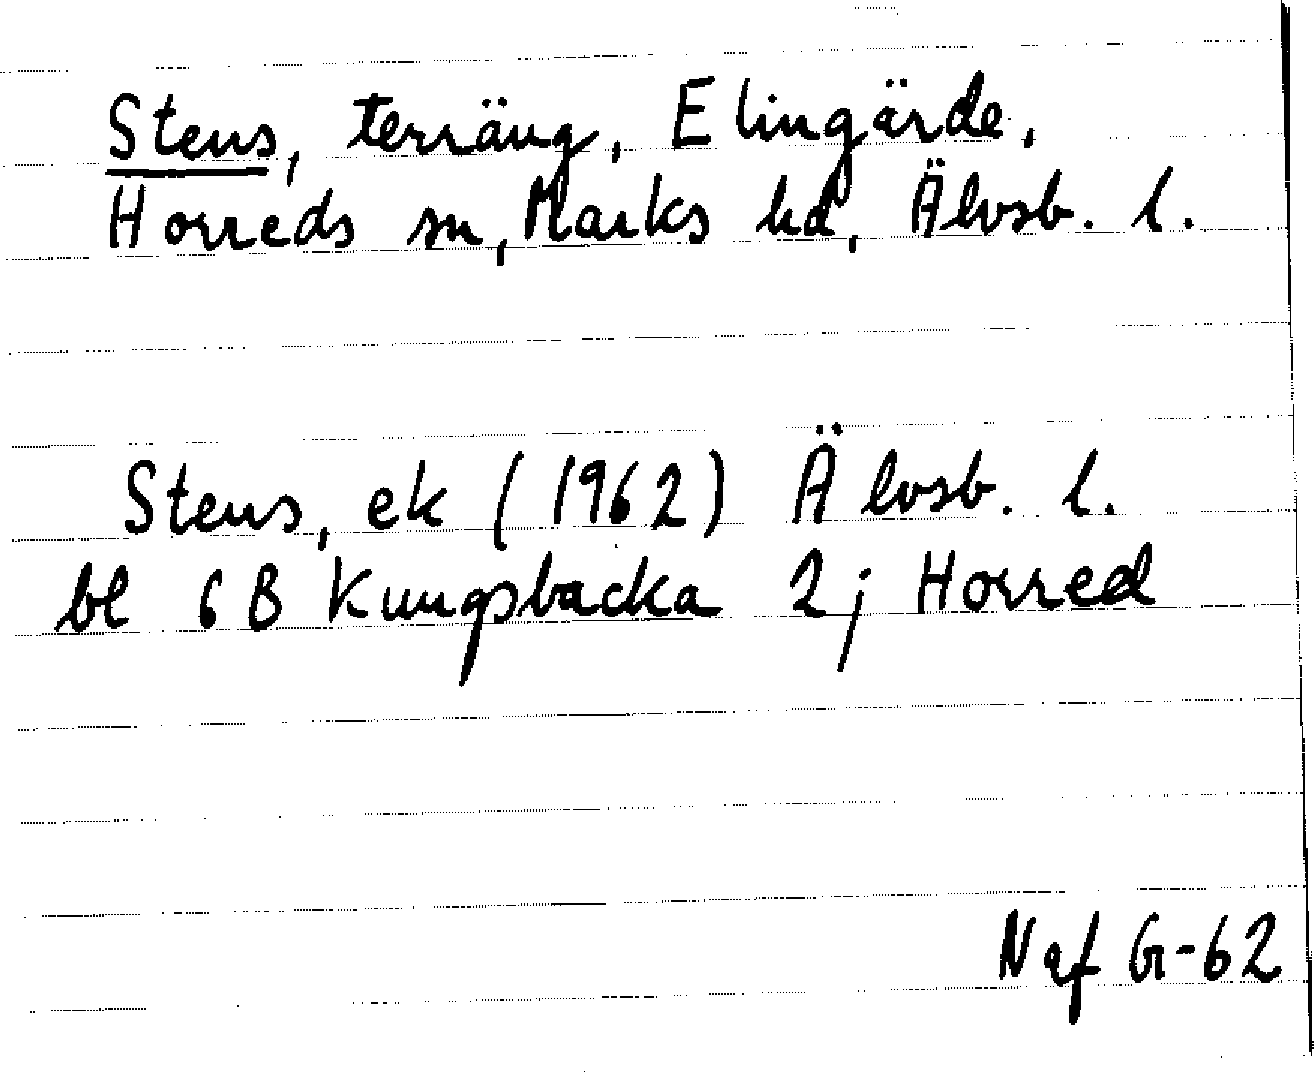 Stens, terräng, Elingärde,
Horreds sn, Marks hd, Älvsb. l.
Stens, ek (1962) Älvsb. l.
bl 6B Kungsbacka 2j Horred
Naf G-62